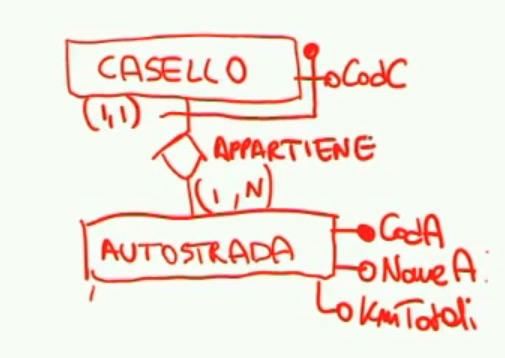 CASELLO
CodC
(1,1)
APPARTIENE
(1,N)
AUTOSTRADA
CodA
NomeA
KmTotali